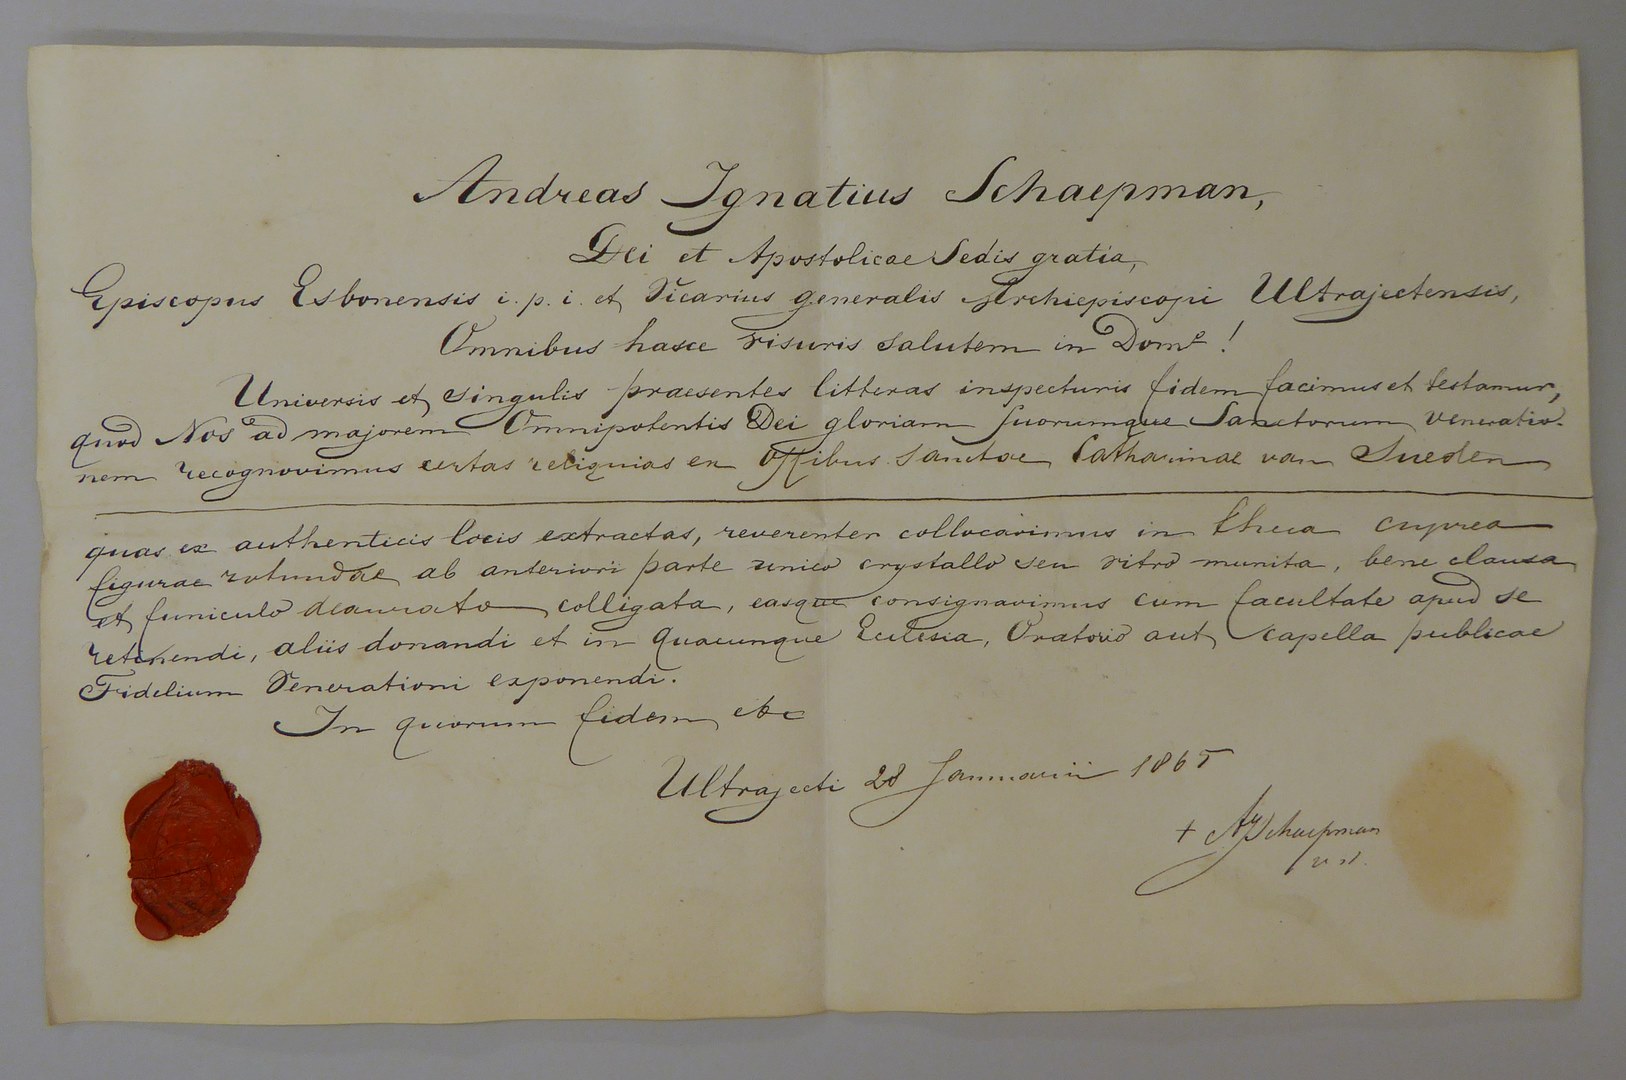 Andreas Ignatius Schaepman,
Dei et Apostolicae Sedis gratia,
Episcopus Esbonensis i. p. i. et Vicarius generalis Archiepiscopi Ultrajectensis,
Omnibus hasce visuris salutem in Domº!
Universis et singulis praesentes litteras inspecturis fidem facimus et testamur,
quod Nos ad majorem Omnipotentis Dei gloriam suorumque Sanctorum veneratio-
nem recognovimus certas reliquias ex Ossibus Sanctae Catharinae van Sueden
quas ex authenticis locis extractas, reverenter collocavimus in theca cuprea
figurae rotundae ab anteriori parte unico crystallo seu vitro munita, bene clausa
et funiculo deaurato colligata, easque consignavimus cum facultate apud se
retinendi, aliis donandi et in quacunque Eclesia, Oratorio aut capella publicae
Fidelium Venerationi exponendi.
In quorum fidem etc
Ultrajecti 28 Januarii 1865
+ A. J. Schaepman